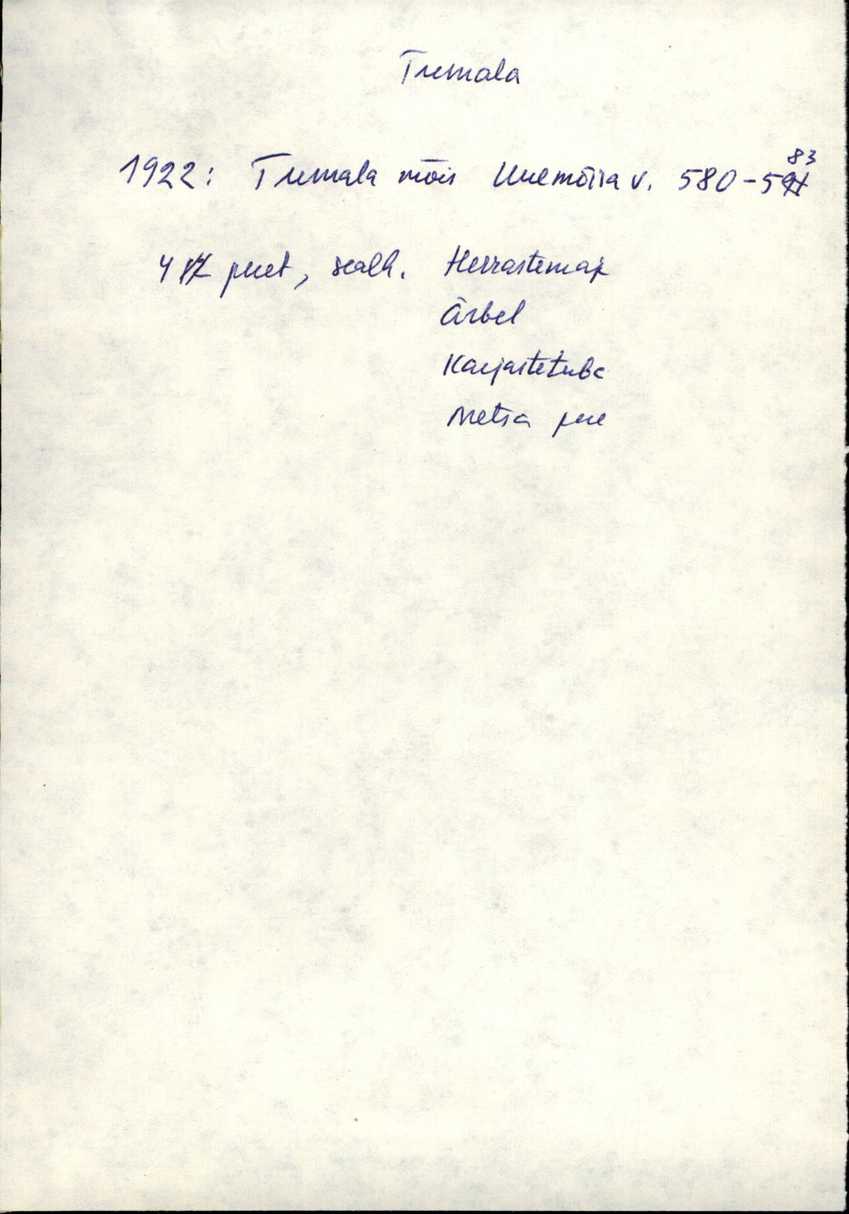 Tremala
1922: Tremala mõis Uuemõisa v. 580-583
4 peret, sealh. Herrastemaj
Ärbel
Karjastetuba
Metsa pere